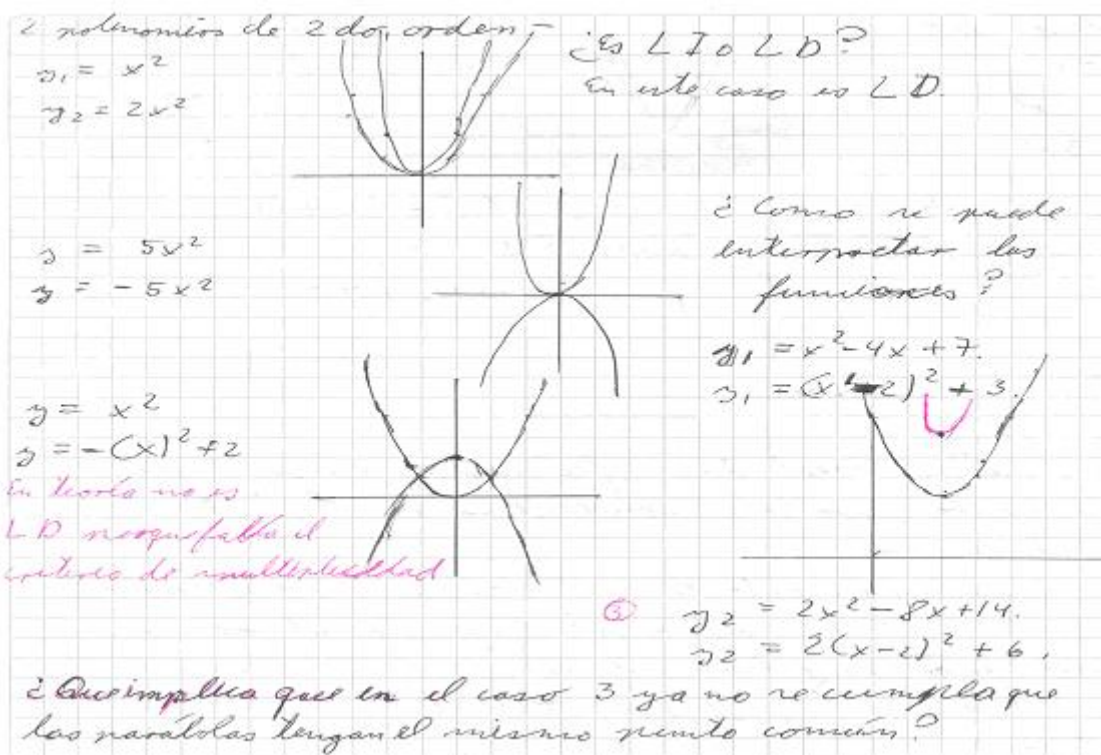 2 polinomios de 2do. orden –
y₁ = x²
y₂ = 2x²
¿Es LI o LD?
En este caso es LD.
y = 5x²
y = -5x²
¿Como se puede
interpretar las
funciones?
y₁ = x² - 4x + 7.
y₁ = (x - 2)² + 3.
y = x²
y = -(x)² + 2
En teoría no es
LD porque falla el
criterio de multiplicidad
③ y₂ = 2x² - 8x + 14.
y₂ = 2(x-2)² + 6.
¿Que implica que en el caso 3 ya no se cumpla que
las parábolas tengan el mismo punto común?